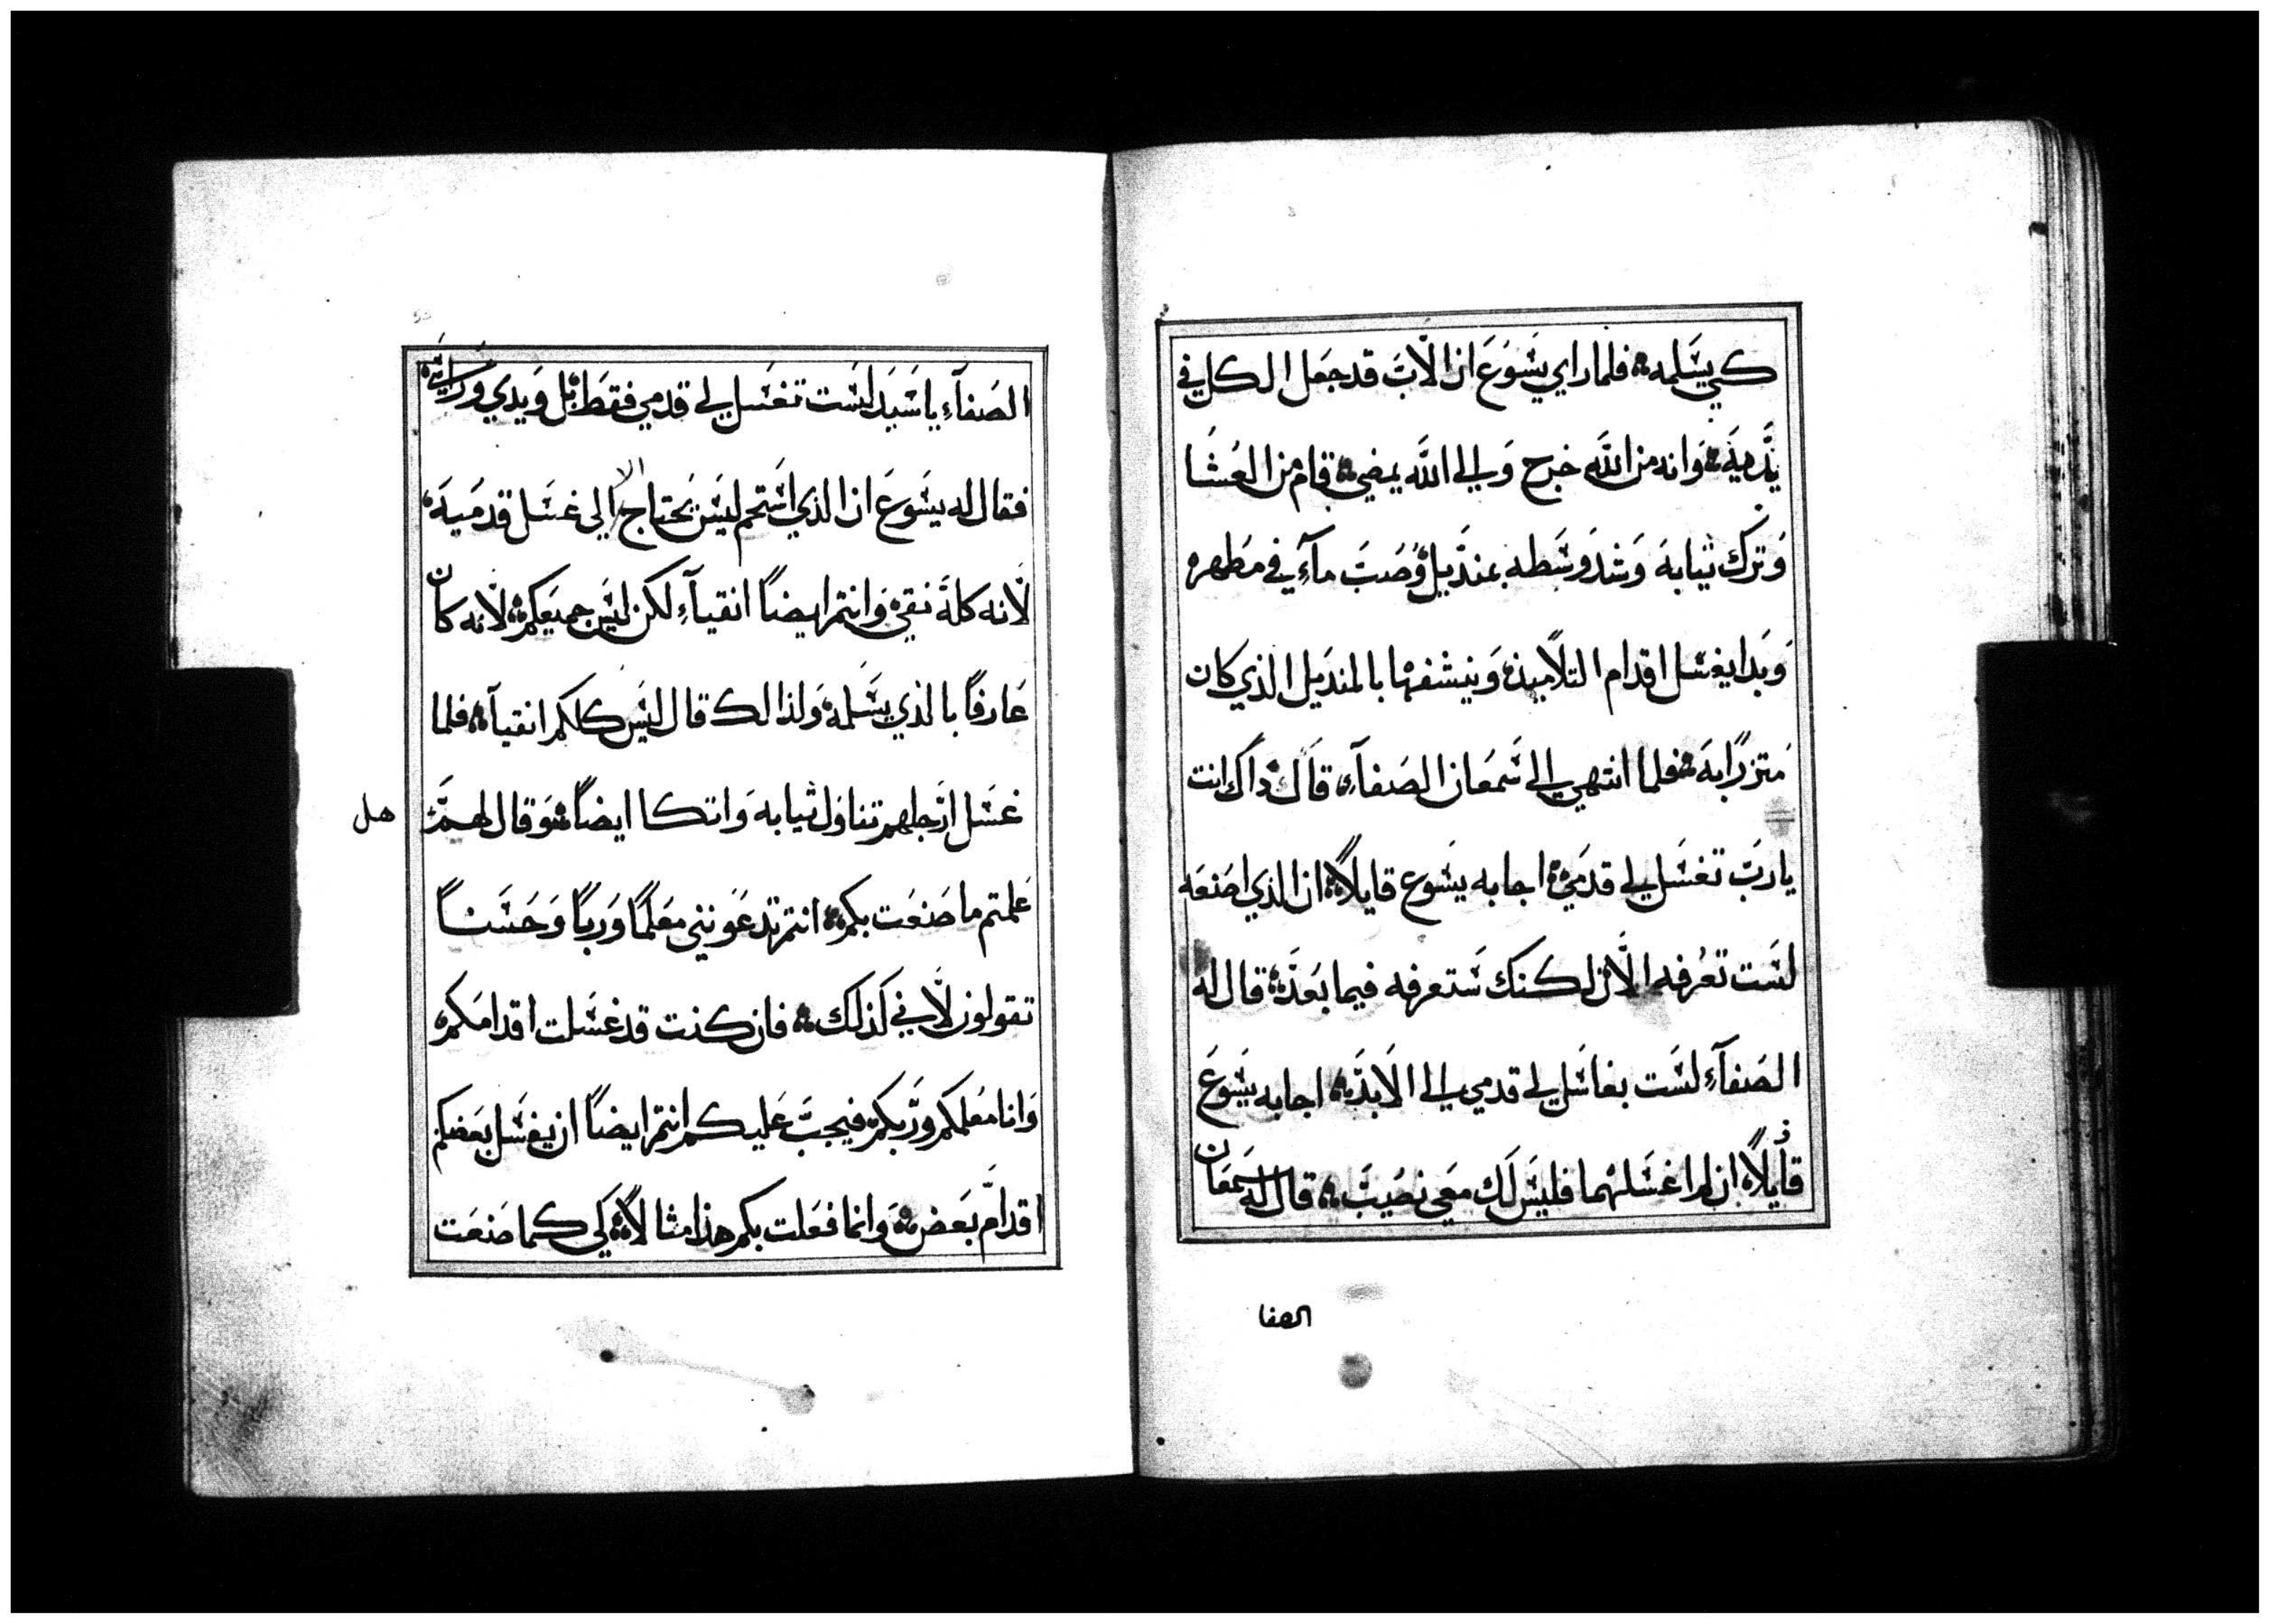 كي يسلمه فلما راي يسوع ان الاب قد جعل الكل في
يديه وانه من الله خرج والي الله يمضي قام من العشا
وترك ثيابه وشد وسطه بمنديل وصب مآء في مطهره
وبدا يغسل اقدام التلاميذ وينشفها بالمنديل الذي كان
متزرا به فلما انتهي الي سمعان الصفآء قال داك انت
يا رب تغسل لي قدمي اجابه يسوع قايلاً ان الذي اصنعه
لست تعرفه الان لكنك ستعرفه فيما بعد قال له
الصفآء لست بغاسل لي قدمي الي الابد اجابه يسوع
قايلاً ان لم اغسلهما فليس لك معي نصيب قال له سمعان
الصفا
الصفآء يا سيد لست تغسل لي قدمي فقط بل ويدي وراسي
فقال له يسوع ان الذي استحم ليس يحتاج الا الي غسل قدميه
لانه كله نقي وانتم ايضاً انقيآء لكن ليس جميعكم لانه كان
عارفاً بالذي يسلمه ولذالك قال ليس كلكم انقيآء فلما
غسل ارجلهم تناول ثيابه واتكا ايضاً وقال لهم هل
علمتم ما صنعت بكم انتم تدعونني معلماً ورباً وحسناً
تقولون لاني كذلك فان كنت قد غسلت اقدامكم
وانا معلمكم وربكم فيجب عليكم انتم ايضاً ان يغسل بعضكم
اقدام بعض وانما فعلت بكم هذا مثالاً لكي كما صنعت